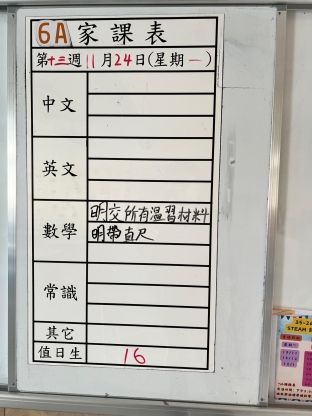 6A家課表
第十三週 11月24日(星期一)
中文
英文
數學
明交所有溫習材料
明帶直尺
常識
其它
值日生 16
STEAM